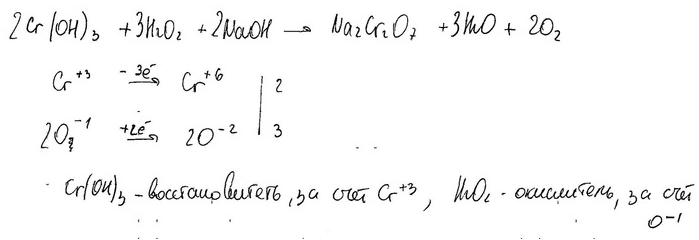 2Cr(OH)₃ + 3H₂O₂ + 2NaOH → Na₂Cr₂O₇ + 3H₂O + 2O₂
Cr⁺³ –3ē→ Cr⁺⁶ | 2
2O₂⁻¹ +2ē→ 2O⁻² | 3
Cr(OH)₃ – восстановитель, за счёт Cr⁺³, H₂O₂ – окислитель, за счёт
O⁻¹